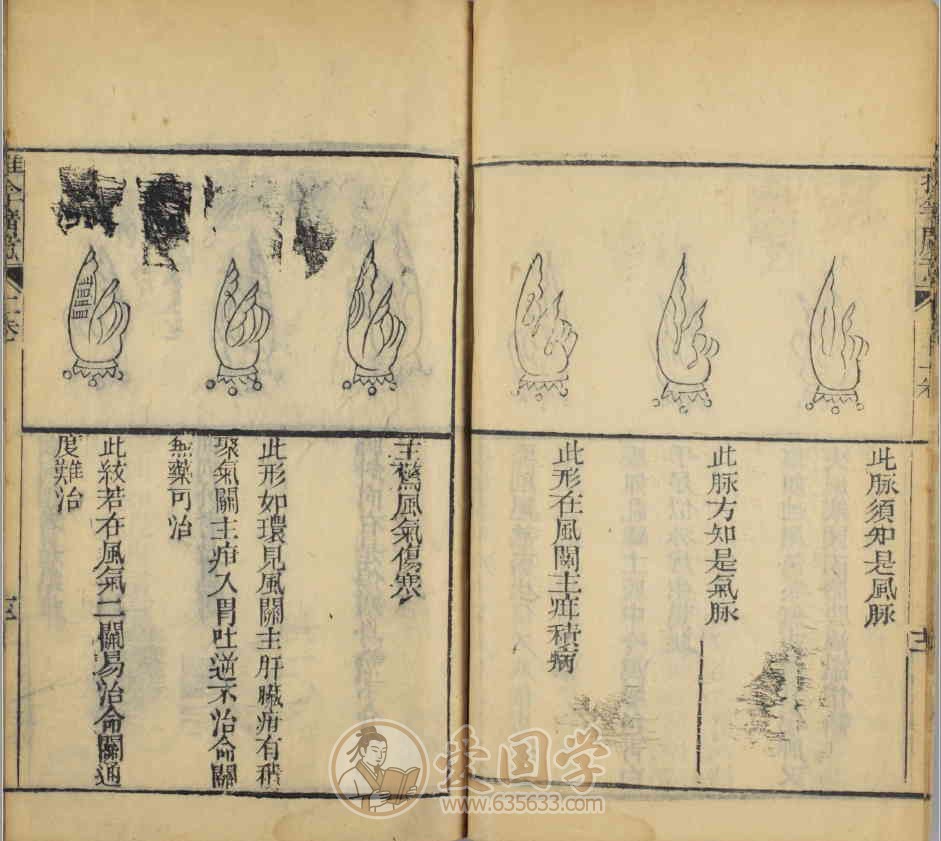 此脉須知是風脉
此脉方知是氣脉
此形在風關主疳積病
主驚風氣傷寒
此形如環見風關主肝臟疳有積
聚氣關主疳入胃吐逆不治命關
無藥可治
此紋若在風氣二關易治命關通
度難治
爱国学
www.635633.com